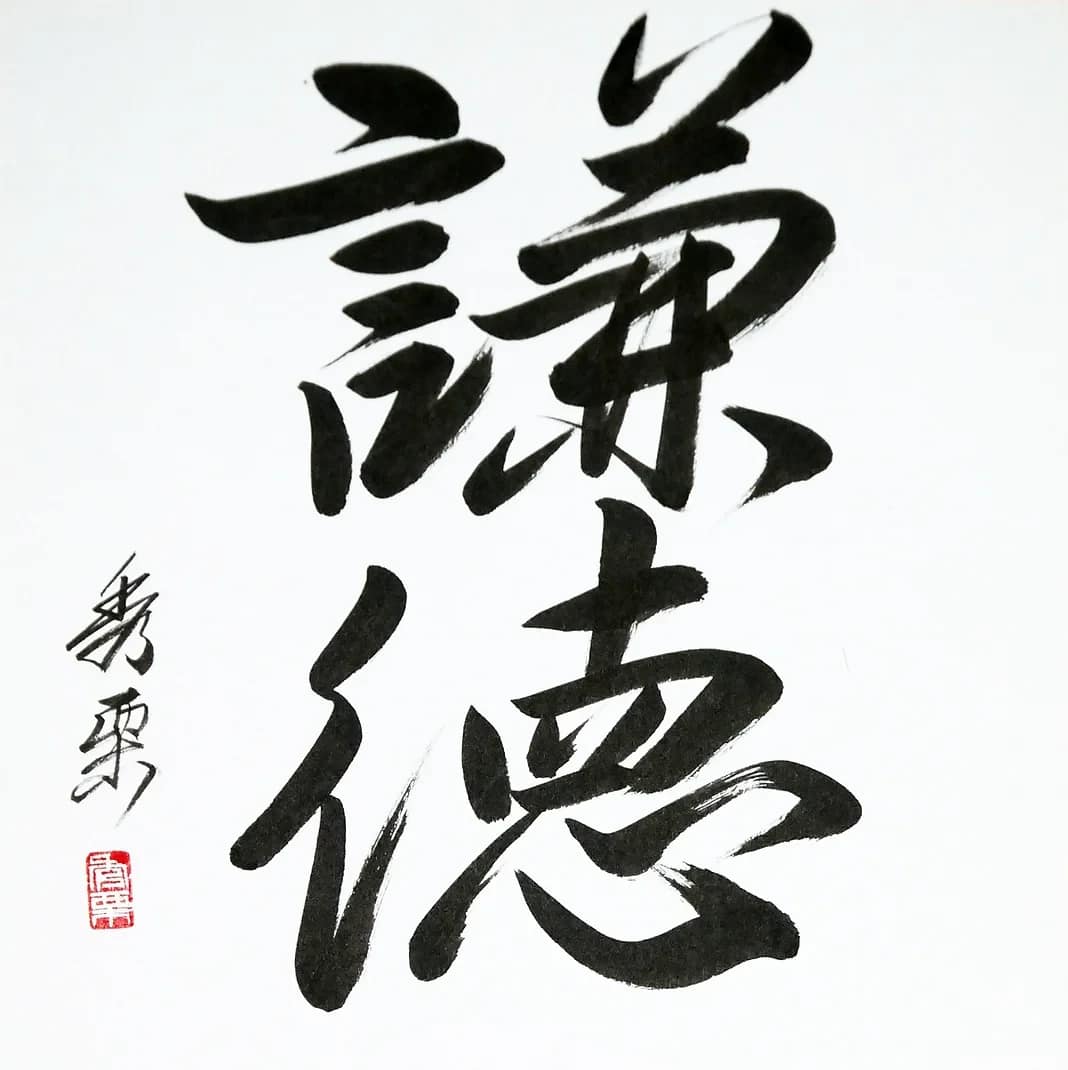 謙德
秀栗